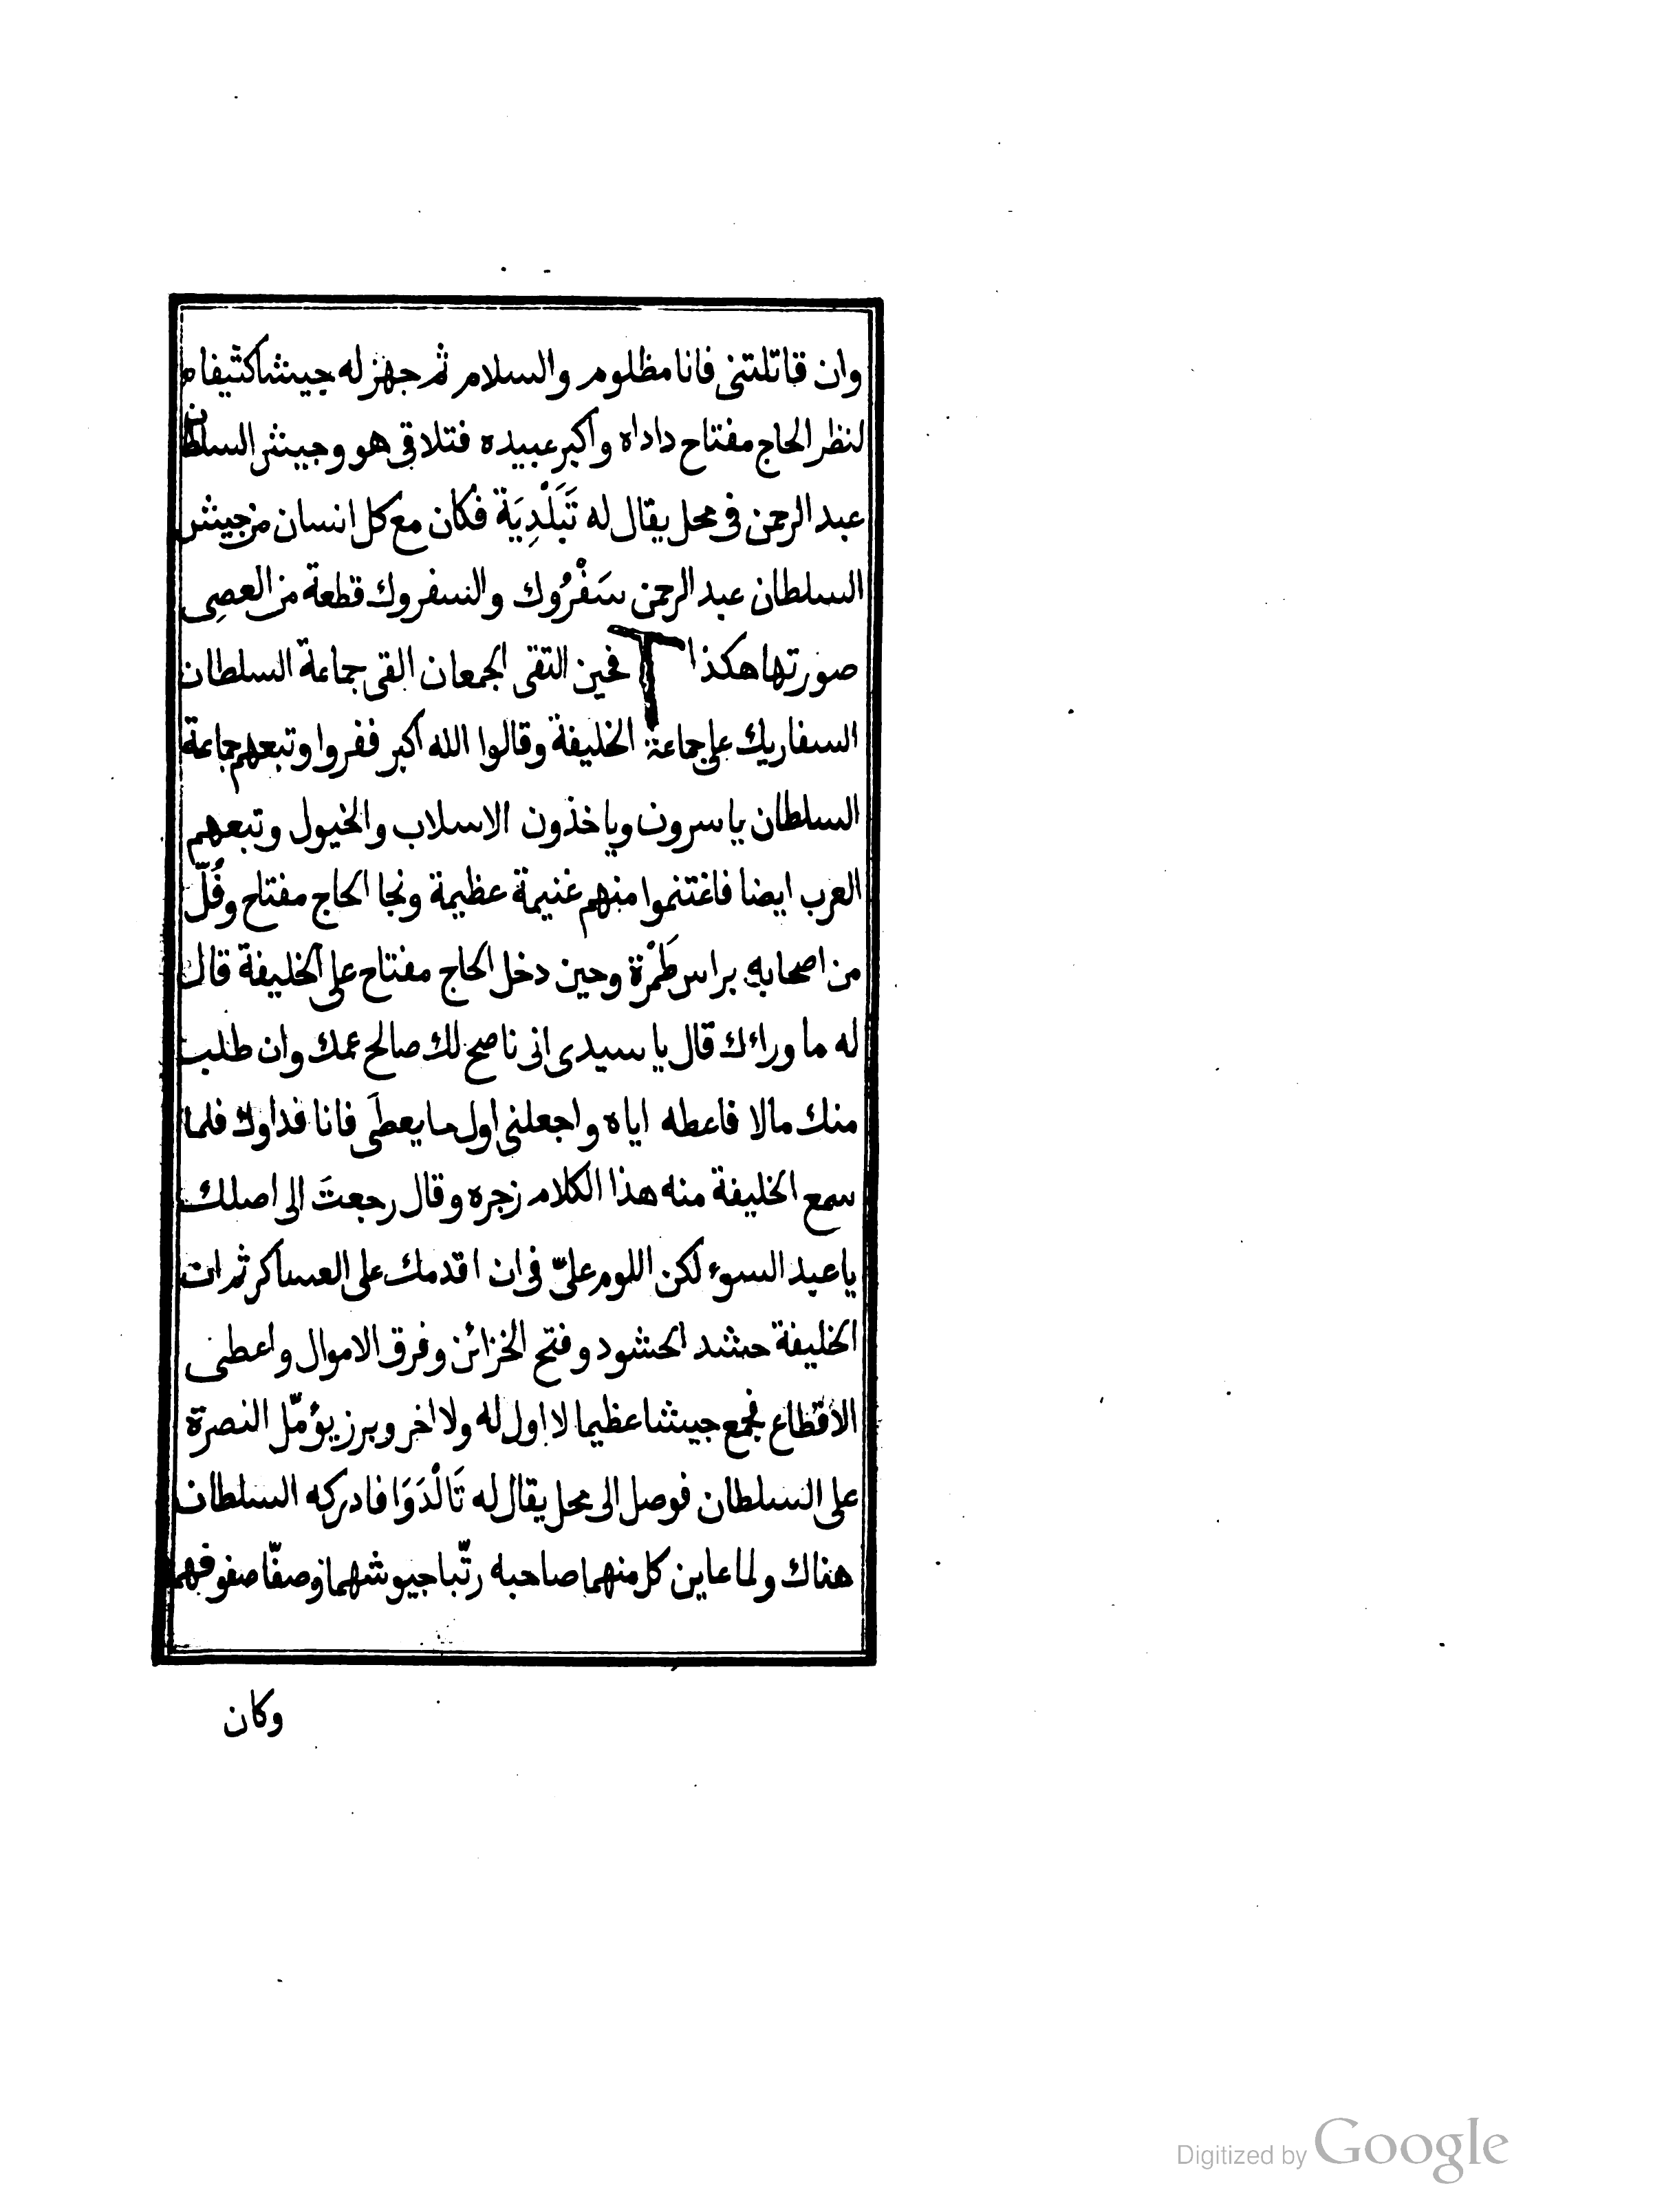 وان قاتلتنى فانا مظلوم والسلام ثم جهز له جيشا كثيفا
لنظر الحاج مفتاح داداه واكبر عبيده فتلاقى هو وجيش السلطان
عبد الرحمن فى محل يقال له تَبَلْدِيَة فكان مع كل انسان من جيش
السلطان عبد الرحمن سَفْرُوك والسفروك قطعة من العصِى
صورتها هكذا فحين التقى الجمعان القى جماعة السلطان
السفاريك على جماعة الخليفة وقالوا الله اكبر ففروا وتبعهم جماعة
السلطان ياسرون وياخذون الاسلاب والخيول وتبعهم
العرب ايضا فاغتنموا منهم غنيمة عظيمة ونجا الحاج مفتاح وفُلّ
من اصحابه براس طَمْرة وحين دخل الحاج مفتاح على الخليفة قال
له ما وراءك قال يا سيدى انى ناصح لك صالح عمك وان طلب
منك مالا فاعطه اياه واجعلنى اول ما يعطَى فانا فداوك فلما
سمع الخليفة منه هذا الكلام زجره وقال رجعتَ الى اصلك
يا عبد السوء لكن اللوم علىّ فى ان اقدمك على العساكر ثم ان
الخليفة حشد الحشود وفتح الخزائن وفرق الاموال واعطى
الاقطاع فجمع جيشا عظيما لا اول له ولا اخر وبرز يؤمّل النصرة
على السلطان فوصل الى محل يقال له تَالْدَوَا فادركه السلطان
هناك ولما عاين كل منهما صاحبه رتّبا جيوشهما وصفّا صفوفهما
وكان
Digitized by Google